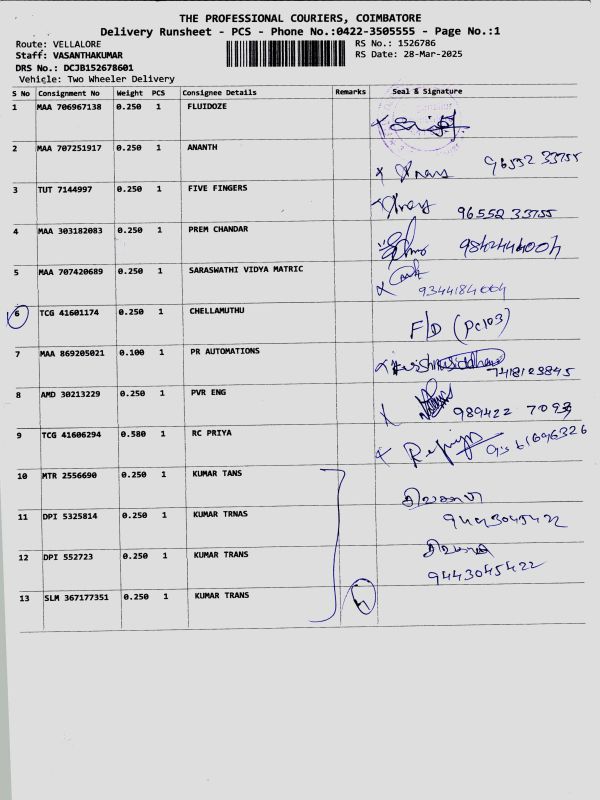 THE PROFESSIONAL COURIERS, COIMBATORE
Delivery Runsheet - PCS - Phone No.:0422-3505555 - Page No.:1
Route: VELLALORE RS No.: 1526786
Staff: VASANTHAKUMAR RS Date: 28-Mar-2025
DRS No.: DCJB152678601
Vehicle: Two Wheeler Delivery
S No Consignment No Weight PCS Consignee Details Remarks Seal & Signature
1 MAA 706967138 0.250 1 FLUIDOZE
2 MAA 707251917 0.250 1 ANANTH
96552 33755
3 TUT 7144997 0.250 1 FIVE FINGERS
96552 33755
4 MAA 303182083 0.250 1 PREM CHANDAR
9842444004
5 MAA 707420689 0.250 1 SARASWATHI VIDYA MATRIC
9344184004
6 TCG 41601174 0.250 1 CHELLAMUTHU
F/D (PC103)
7 MAA 869205021 0.100 1 PR AUTOMATIONS
7418123845
8 AMD 30213229 0.250 1 PVR ENG
989422 7093
9 TCG 41606294 0.580 1 RC PRIYA
10 MTR 2556690 0.250 1 KUMAR TANS
11 DPI 5325814 0.250 1 KUMAR TRNAS
9443045422
12 DPI 552723 0.250 1 KUMAR TRANS
9443045422
13 SLM 367177351 0.250 1 KUMAR TRANS